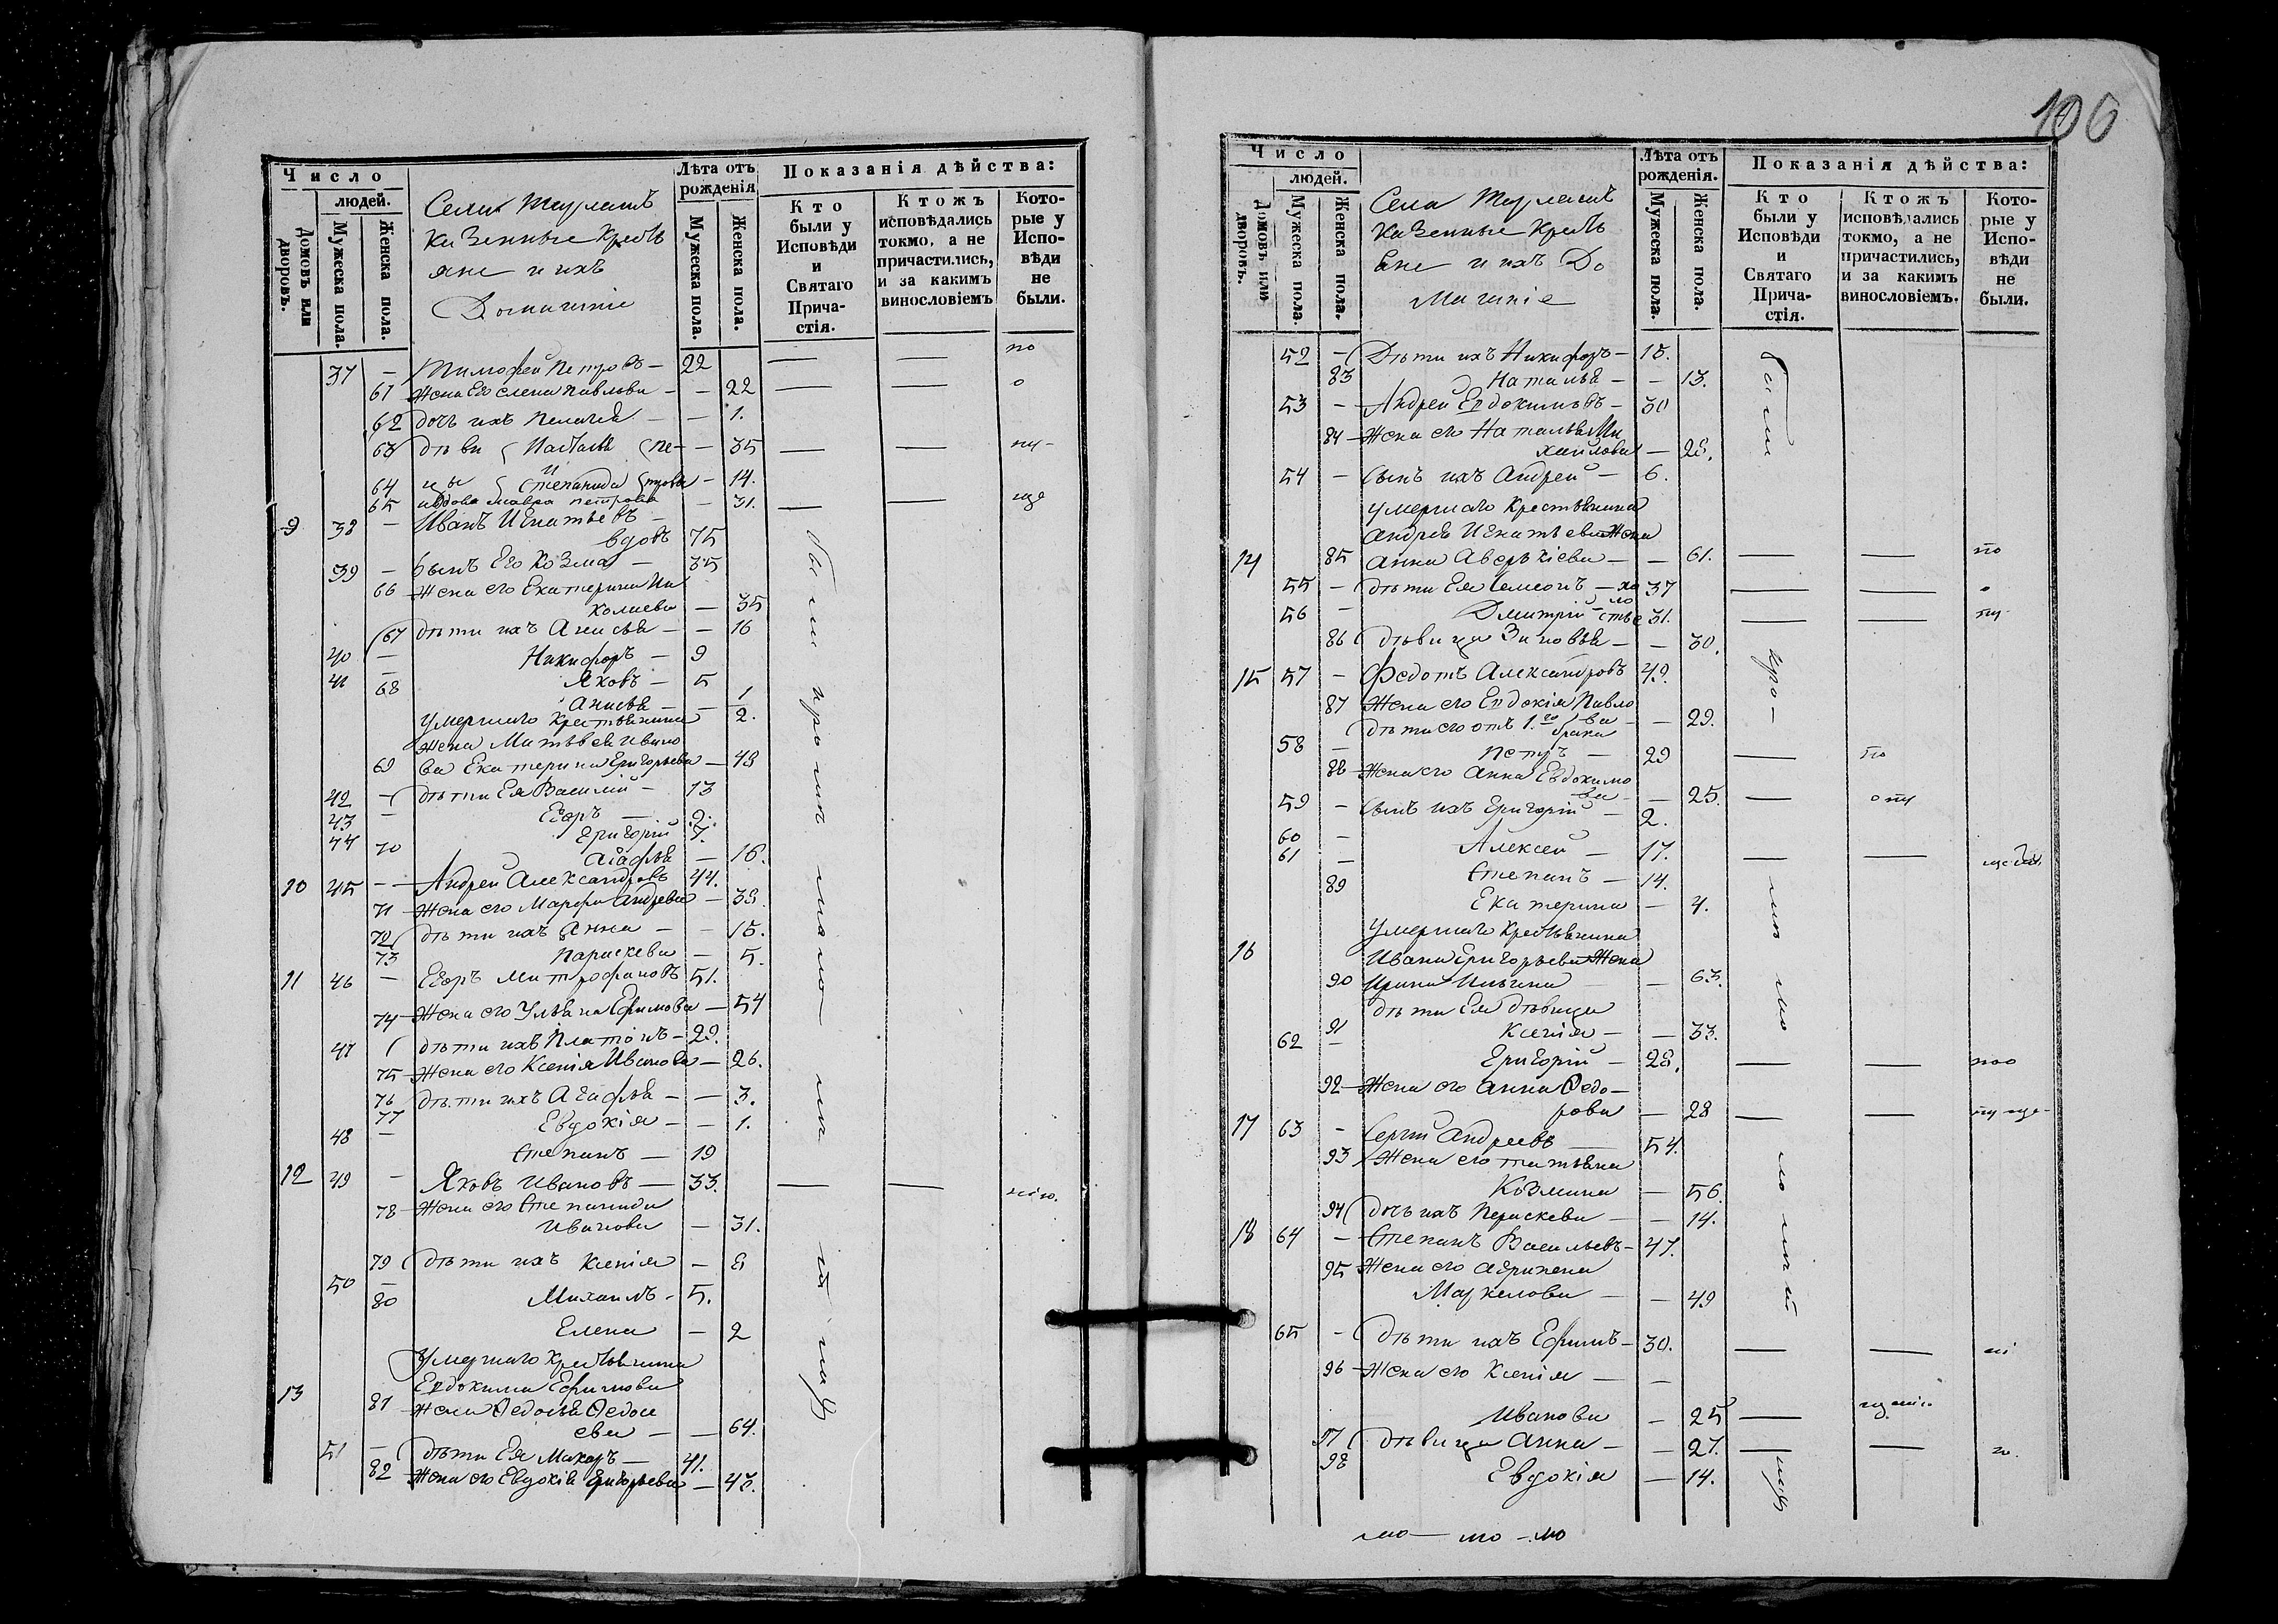 Число
людей.
Домовъ или дворовъ.
Мужеска пола.
Женска пола.
Села
казенные кресть
яне и ихъ
Домашніе
Лѣта отъ
рожденія
Мужеска пола.
Женска пола.
Показанія дѣйства:
Кто
были у
Исповѣди
и
Святаго
Прича-
стія.
Ктожъ
исповѣдались
токмо, а не
причастились,
и за какимъ
винословіемъ
Кото-
рые у
Испо-
вѣди
не
были.
37 — Тимофей Петровъ — 22
61 Жена Его Елена Павлова — — 22
62 дочь ихъ Пелагея — — 1.
63 дѣви Наталья Пе- — 35
64 цы и Степанида трова — 14.
65 вдова Мавра Петрова — 31.
9 38 — Иванъ Игнатьевъ —
вдовъ 75
39 — сынъ Его Козма — 35
66 Жена его Екатерина Ни
колаева — 35
67 дѣти ихъ Анисья — — 16
40 — Никифоръ — 9
41 — Яковъ — 5
68 Анисья — — 1/2.
Умершаго Крестьянина
жена Матвея Ивано
69 ва Екатерина Григорьева — 48
42 — дѣти Ея Василій — 13
43 — Егоръ — 9.
44 Григорій 7.
70 Агафья — 16.
10 45 — Андрей Александровъ 44.
71 Жена его Марфа Андреева — 38
72 дѣти ихъ Анна — — 15.
73 Параскева — 5.
11 46 — Егоръ Митрофановъ 51.
74 Жена его Ульяна Ефимова — 54
47 дѣти ихъ Платонъ — 29.
75 Жена его Ксенія Иванова — 26.
76 дѣти ихъ Агафья — — 3.
77 Евдокія — — 1.
48 — Степанъ — 19
12 49 — Яковъ Ивановъ — 33.
78 Жена его Степанида
Иванова — 31.
79 дѣти ихъ Ксенія — 8
50 — Михаилъ — 5.
80 Елена — 2
Умершаго Крестьянина
Евдокима Ефимова
13 81 Жена Ѳедосья Ѳедосе
ева — — 64.
51 — дѣти Ея Макаръ — 41.
82 Жена его Евдокія Григорьева — 42.
106
Число
людей.
Домовъ или дворовъ.
Мужеска пола.
Женска пола.
Села
казенные кресть
яне и ихъ До
машніе
Лѣта отъ
рожденія.
Мужеска пола.
Женска пола.
Показанія дѣйства:
Кто
были у
Исповѣди
и
Святаго
Прича-
стія.
Ктожъ
исповѣдались
токмо, а не
причастились,
и за какимъ
винословіемъ.
Кото-
рые у
Испо-
вѣди
не
были.
52 — Дѣти ихъ Никифоръ — 15.
83 Наталья — — 13.
53 — Андрей Евдокимовъ — 30
84 Жена его Наталья Ми
хайлова — 28.
54 — Сынъ ихъ Андрей — 6.
Умершаго Крестьянина
Андрея Игнатьева Жена
14 85 Анна Аверкіева — — 61.
55 — дѣти Ея Семенъ — хо 37
56 — Дмитрій — ло сты е 31.
86 дѣвица Зиновья — — 30.
15 57 — Федотъ Александровъ 49.
87 Жена его Евдокія Павло
ва — — 29.
дѣти его отъ 1.го брака
58 — Петръ — 29
88 Жена его Анна Евдокимо
ва — — 25.
59 — Сынъ ихъ Григорій — 2.
60 — Алексей — 17.
61 — Степанъ — 14.
89 Екатерина — 4.
Умершаго Крестьянина
16 Ивана Григорьева Жена
90 Ирина Ильина — — 63.
дѣти Ея дѣвица
91 Ксенія — — 33.
62 — Григорій — 28.
92 Жена его Анна Ѳедо-
рова — 28
17 63 — Сергій Андреевъ — 54.
93 Жена его Татьяна
Козмина — 56.
94 дочь ихъ Параскева — — 14.
18 64 — Степанъ Васильевъ — 47.
95 Жена его Агрипена
Маркелова — — 49
65 — Дѣти ихъ Ефимъ — 30.
96 Жена его Ксенія — —
Иванова — 25
97 дѣвица Анна — — 27.
98 Евдокія — 14.